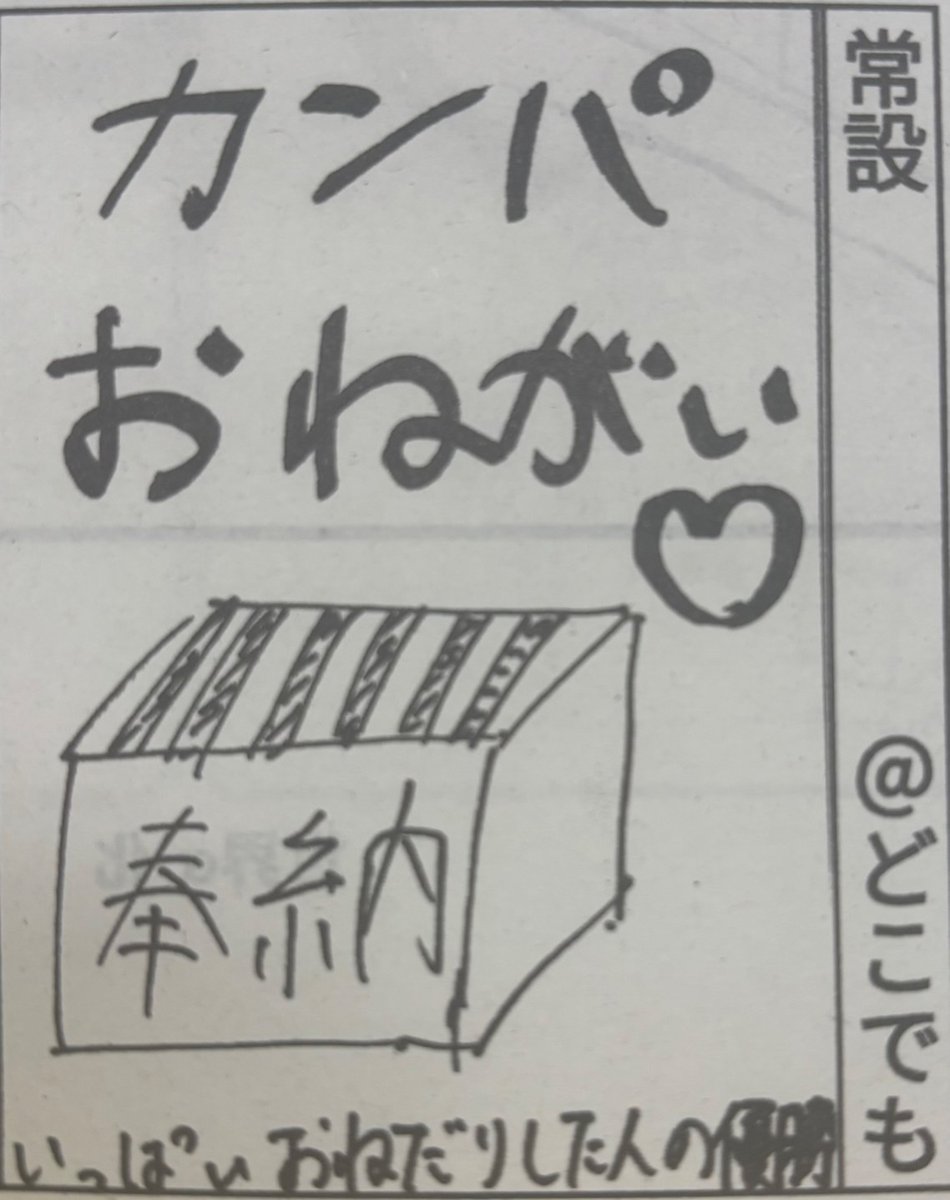 常設 @どこでも
カンパ
おねがい♡
奉納
いっぱいおねだりした人の優勝